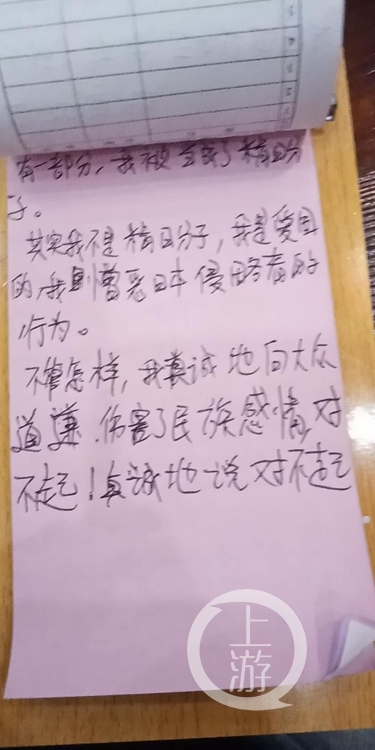 有一部分，我被全成了精日分
子。
其实我不是精日分子，我是爱国
的，我憎恶日本侵略者的
行为。
不管怎样，我真诚地向大众
道歉.伤害了民族感情，对
不起！真诚地说对不起
上游